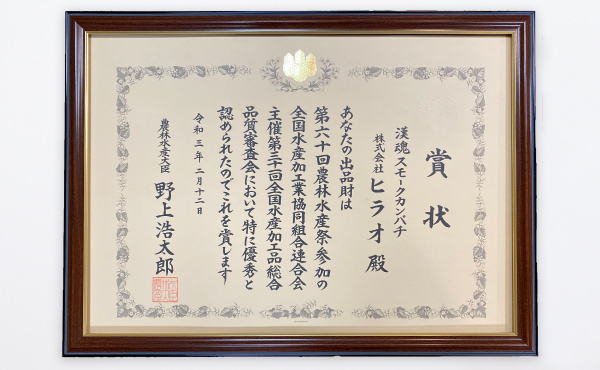 賞状
漢魂スモークカンパチ
株式会社ヒラオ殿
あなたの出品財は
第六十回農林水産祭参加の
全国水産加工業協同組合連合会
主催第三十一回全国水産加工品総合
品質審査会において特に優秀と
認められたのでこれを賞します
令和三年二月十二日
農林水産大臣 野上浩太郎